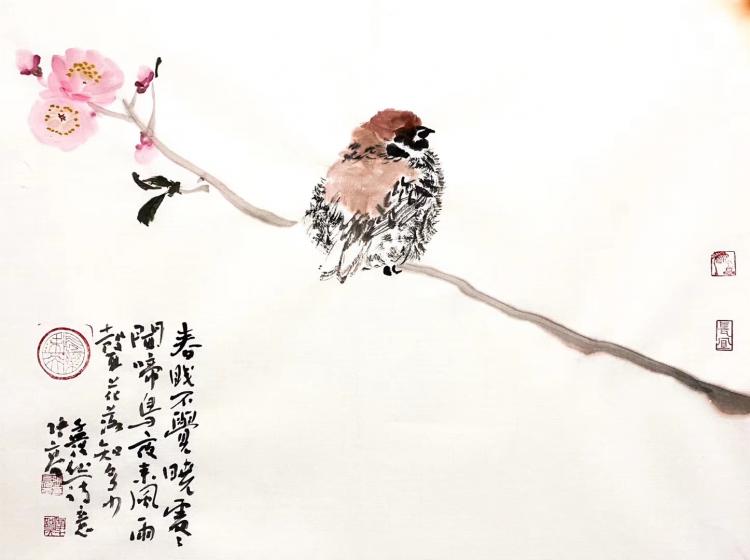 春眠不覺曉處〻
聞啼鳥夜來風雨
聲花落知多少
詩意
長宜